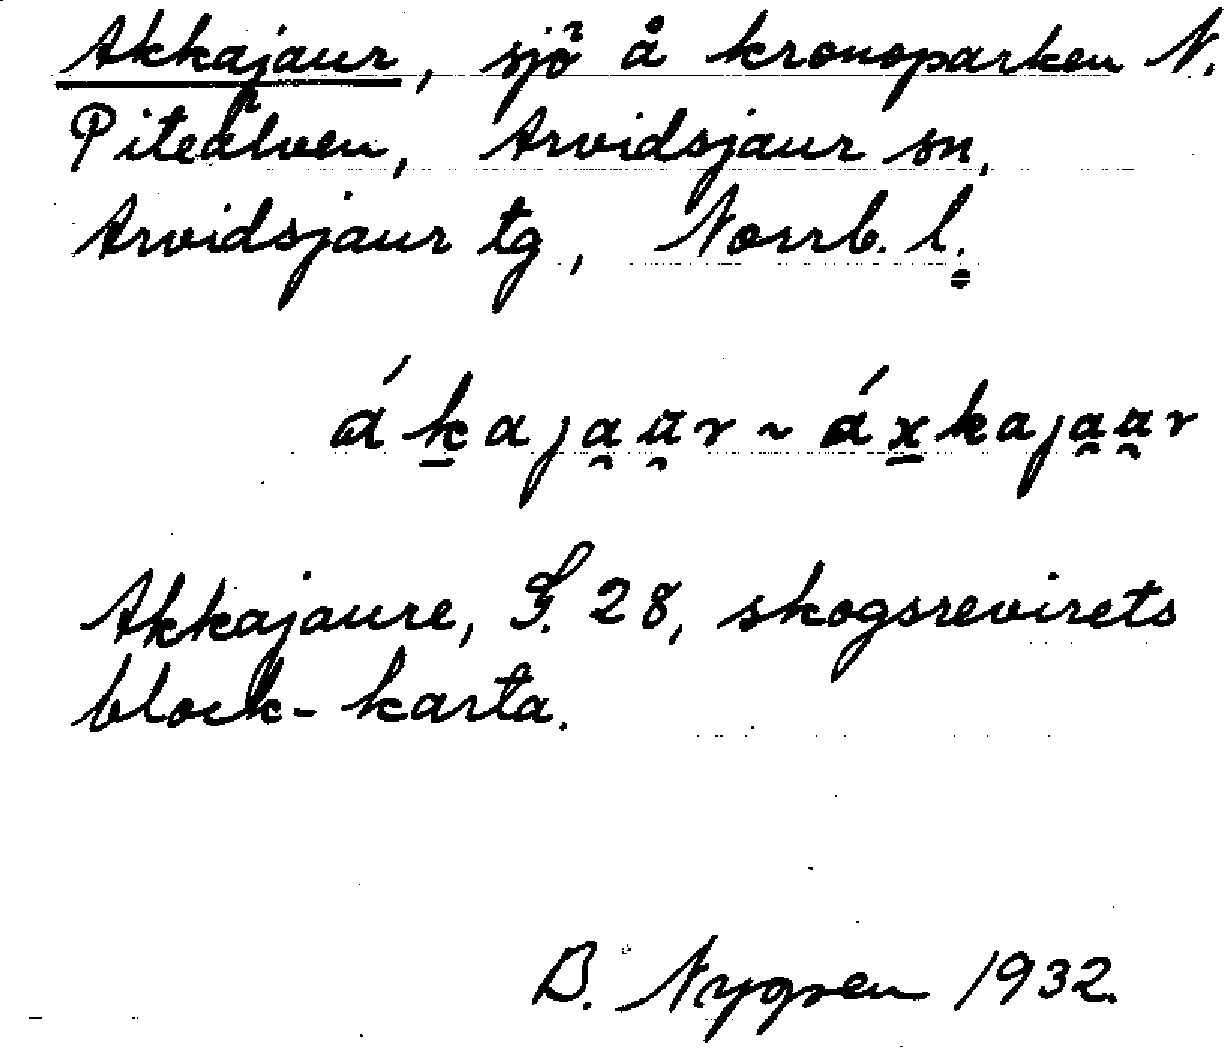 Akkajaur, sjö å kronoparken N.
Piteälven, Arvidsjaur sn,
Arvidsjaur tg, Norrb. l.
áḵaja̯u̯r ~ áx̱kaja̯u̯r
Akkajaure, S. 28, skogsrevirets
block-karta.
B. Nygren 1932.